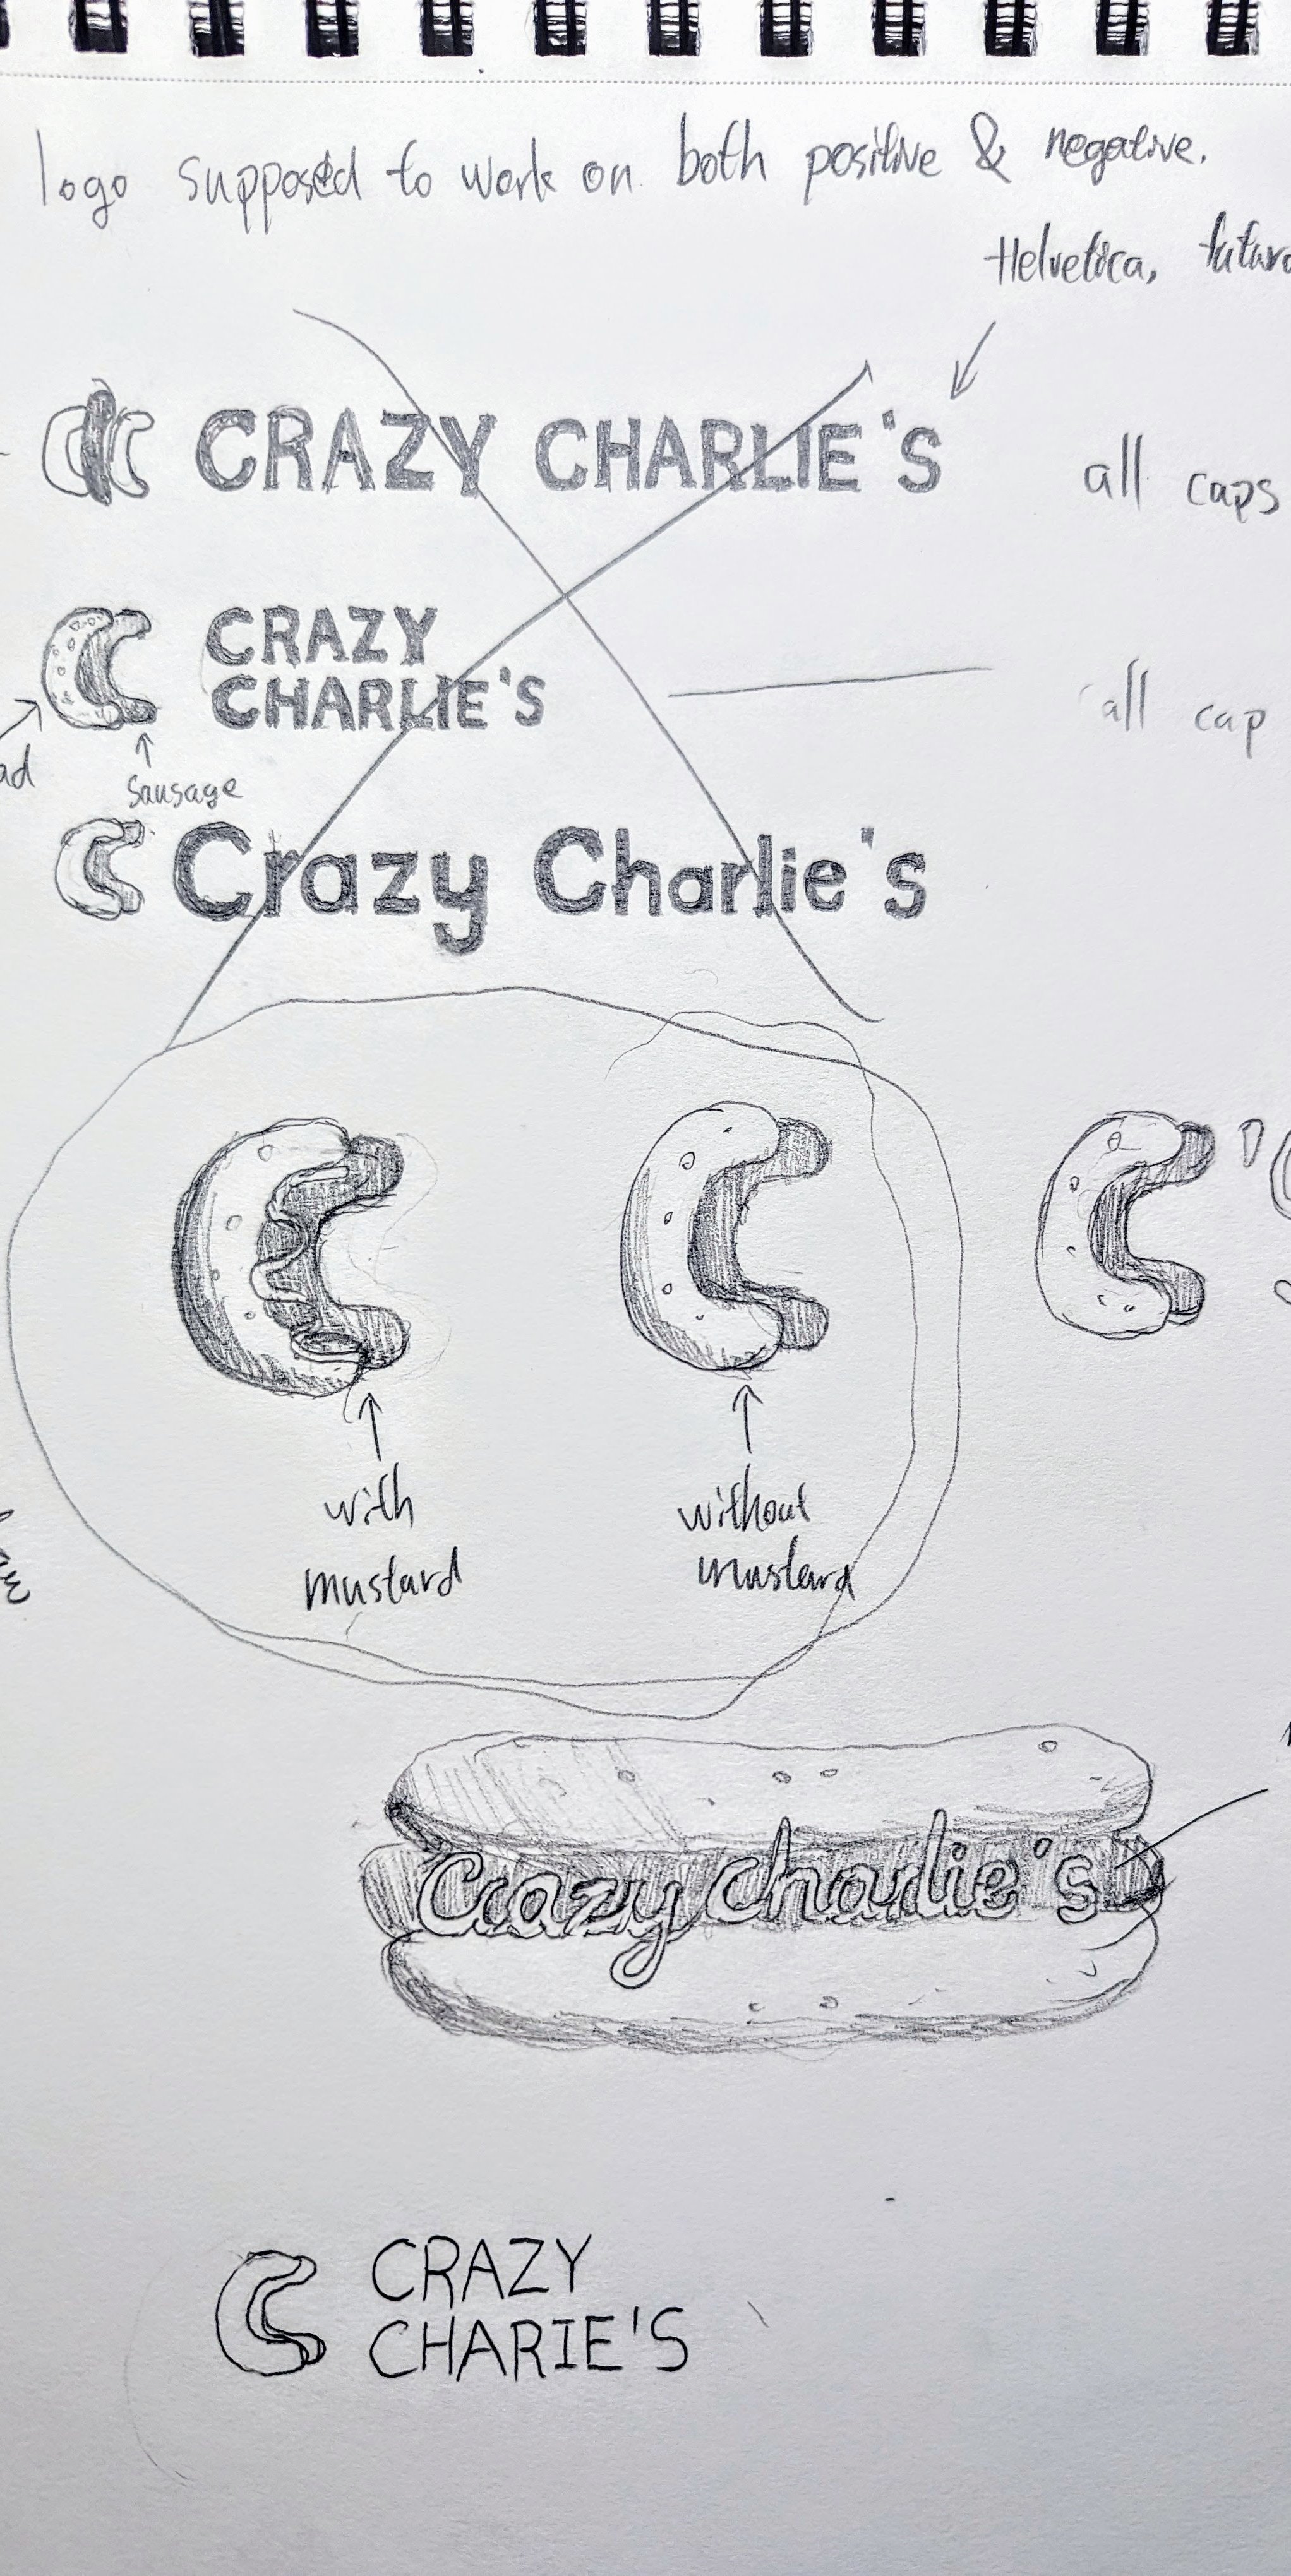 logo supposed to work on both positive & negative.
Helvetica, futura
CRAZY CHARLIE'S
all caps
CRAZY
CHARLIE'S
all cap
sausage
Crazy Charlie's
with
mustard
without
mustard
Crazy Charlie's
CRAZY
CHARIE'S